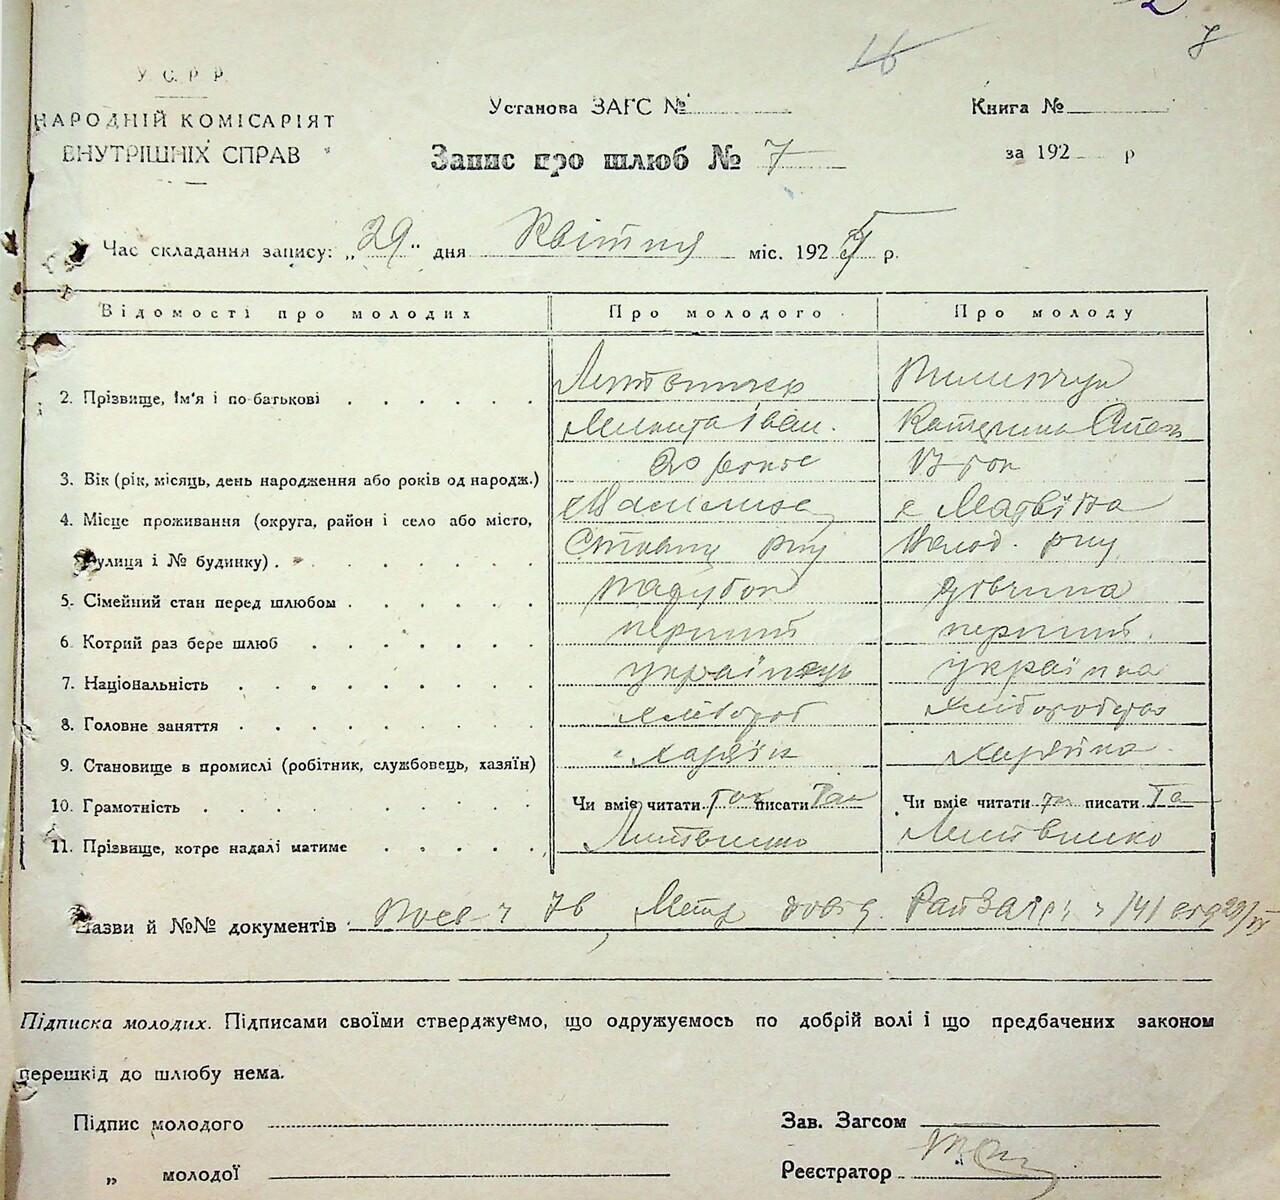 7
У. С. Р. Р.
НАРОДНІЙ КОМІСАРІЯТ
ВНУТРІШНІХ СПРАВ
Установа ЗАГС №
Книга №
Запис про шлюб № 7
за 192 р
Час складання запису: „29" дня Квітня міс. 1925 р.
Відомості про молодих Про молодого Про молоду
2. Прізвище, ім'я і по-батькові Литвинко
Микита Іван. Катерина
3. Вік (рік, місяць, день народження або років од народж.) 20 рок
4. Місце проживання (округа, район і село або місто, с Матвіїва
вулиця і № будинку) Ставищ рну Волод. рну
5. Сімейний стан перед шлюбом парубок дівчина
6. Котрий раз бере шлюб перший перший
7. Національність українець українка
8. Головне заняття хлібороб
9. Становище в промислі (робітник, службовець, хазяїн) хазяїн хазяйка
10. Грамотність Чи вміє читати так писати Так Чи вміє читати та писати Та
11. Прізвище, котре надалі матиме Литвинко Литвинко
Назви й №№ документів Посв ч 76, Метр довід. РайЗагсу ч 141 від 29/IV
Підписка молодих. Підписами своїми стверджуємо, що одружуємось по добрій волі і що предбачених законом
перешкід до шлюбу нема.
Підпис молодого
Зав. Загсом
„ молодої
Реєстратор